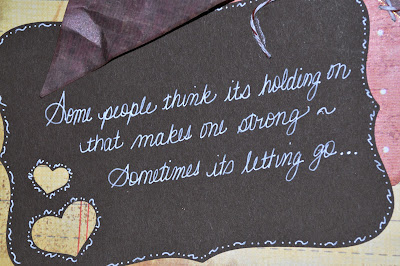 Some people think its holding on
that makes one strong ~
Sometimes its letting go...